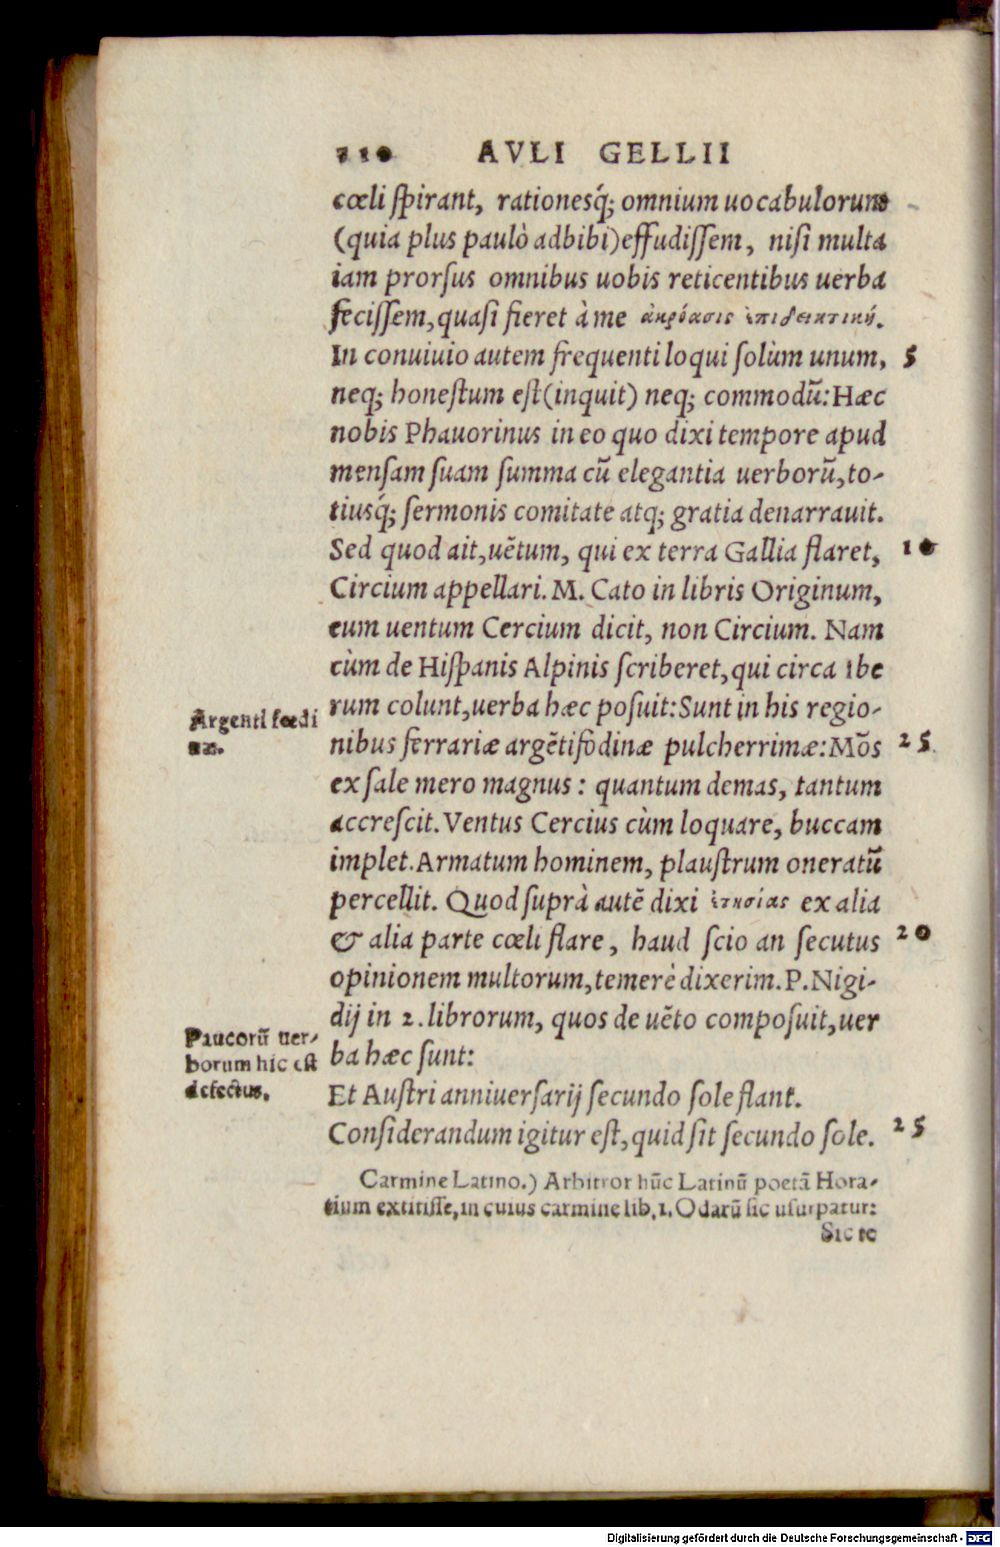 210 AVLI GELLII
cœli ſpirant, rationesq́; omnium uocabulorum
(quia plus paulò adbibi)effudiſſem, niſi multa
iam prorſus omnibus uobis reticentibus uerba
feciſſem,quaſi fieret à me ἀκρόασις ἐπιδεικτική.
In conuiuio autem frequenti loqui ſolùm unum, 5
neq; honeſtum eſt(inquit) neq; commodũ:Hæc
nobis Phauorinus in eo quo dixi tempore apud
menſam ſuam ſumma cũ elegantia uerborũ,to-
tiusq́; ſermonis comitate atq; gratia denarrauit.
Sed quod ait,uẽtum, qui ex terra Gallia flaret, 10
Circium appellari. M. Cato in libris Originum,
eum uentum Cercium dicit, non Circium. Nam
cùm de Hiſpanis Alpinis ſcriberet,qui circa Ibe
rum colunt,uerba hæc poſuit:Sunt in his regio-
Argenti fœdi
næ.
nibus ferrariæ argẽtifodinæ pulcherrimæ:Mõs 25
ex ſale mero magnus : quantum demas, tantum
accreſcit. Ventus Cercius cùm loquare, buccam
implet. Armatum hominem, plauſtrum oneratũ
percellit. Quod ſuprà autẽ dixi ἐτησίας ex alia
& alia parte cœli flare, haud ſcio an ſecutus 20
opinionem multorum,temerè dixerim. P. Nigi-
dij in 2. librorum, quos de uẽto compoſuit,uer
Paucorũ uer-
borum hic eſt
defectus.
ba hæc ſunt:
Et Auſtri anniuerſarij ſecundo ſole flant.
Conſiderandum igitur eſt,quid ſit ſecundo ſole. 25
Carmine Latino.) Arbitror hũc Latinũ poetã Hora-
tium extitiſſe,in cuius carmine lib.1. Odarũ ſic uſurpatur:
Sic te
Digitalisierung gefördert durch die Deutsche Forschungsgemeinschaft - DFG